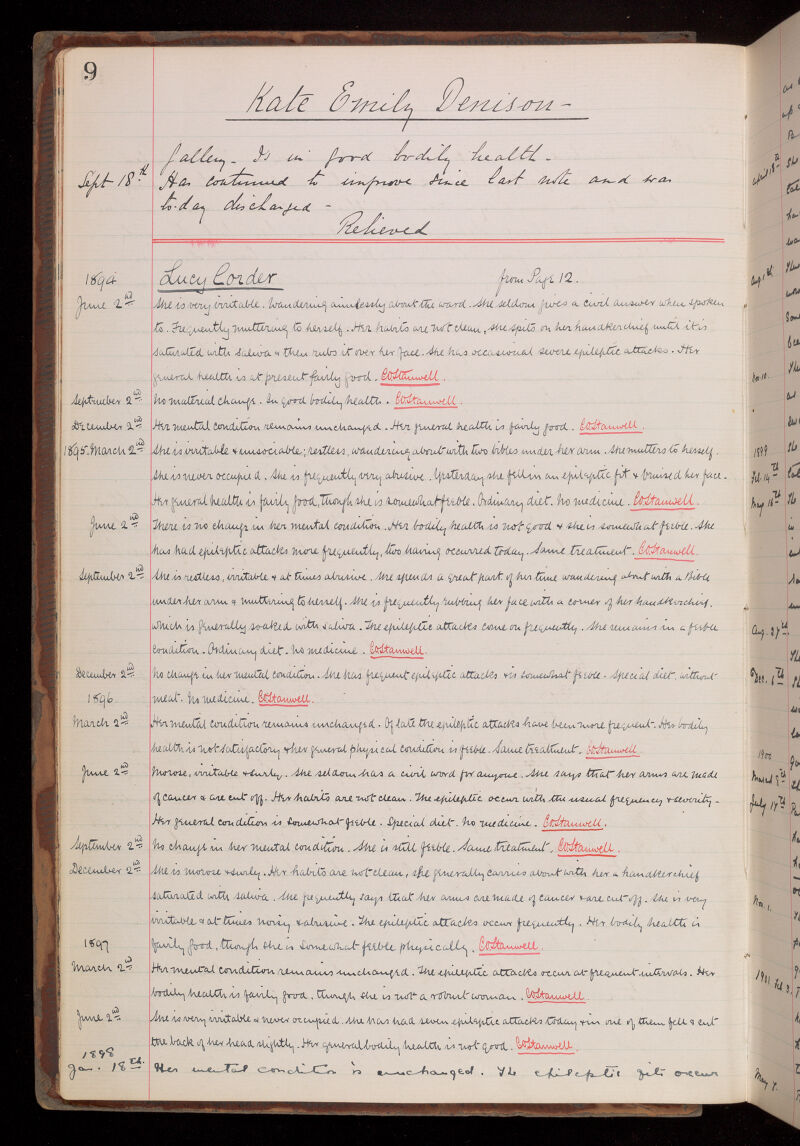 9
Kate Emily Denison -
gallery. Is in good bodily health -
Sept 18th Has continued to improve since last note and was
to-day discharged -
Relieved
1894 Lucy Corder from Page 12.
June 2nd She is very irritable. Wandering aimlessly about the ward. She seldom gives a civil answer when spoken
to. Frequently muttering to herself. Her habits are not clean, she spits on her handkerchief until it is
saturated with saliva & then rubs it over her face. She has occasional severe epileptic attacks. Her
general health is at present fairly good. COStanwell.
September 2nd No material change. In good bodily health. COStanwell.
December 2nd Her mental condition remains unchanged. Her general health is fairly good. COStanwell.
1895. March 2nd She is irritable & unsociable; restless, wandering about with two bibles under her arm. She mutters to herself.
She is never occupied. She is frequently very abusive. Yesterday she fell in an epileptic fit & bruised her face.
Her general health is fairly good, though she is somewhat feeble. Ordinary diet. No medicine. COStanwell.
June 2nd There is no change in her mental condition. Her bodily health is not good & she is somewhat feeble. She
has had epileptic attacks more frequently, two having occurred today. Same treatment. COStanwell.
September 2nd She is restless, irritable & at times abusive. She spends a great part of her time wandering about with a Bible
under her arm & muttering to herself. She is frequently rubbing her face with a corner of her handkerchief,
which is generally soaked with saliva. The epileptic attacks come on frequently. She remains in a feeble
condition. Ordinary diet. No medicine. COStanwell.
December 2nd No change in her mental condition. She has frequent epileptic attacks & is somewhat feeble. Special diet, without
1896 meat. No medicine. COStanwell.
March 2nd Her mental condition remains unchanged. Of late the epileptic attacks have been more frequent. Her bodily
health is not satisfactory & her general physical condition is feeble. Same treatment. COStanwell
June 2nd Morose, irritable & surly. She seldom has a civil word for anyone. She says that her arms are made
of cancer & are cut off. Her habits are not clean. The epileptic occur with the usual frequency & severity -
Her general condition is somewhat feeble. Special diet. No medicine. COStanwell.
September 2nd No change in her mental condition. She is still feeble. Same treatment. COStanwell.
December 2nd She is morose & surly. Her habits are not clean, she generally carries about with her a handkerchief
saturated with saliva. She frequently says that her arms are made of cancer & are cut off. She is very
irritable & at times noisy & abusive. The epileptic attacks occur frequently. Her bodily health is
1897 fairly good, though she is somewhat feeble physically. COStanwell.
March 2nd Her mental condition remains unchanged. The epileptic attacks occur at frequent intervals. Her
bodily health is fairly good, though she is not a robust woman. COStanwell
June 2nd She is very irritable & never occupied. She has had seven epileptic attacks today & in one of them fell & cut
the back of her head slightly. Her general bodily health is not good. COStanwell
1898
Jan. 18th. Her mental condition is unchanged. The epileptic fits occur
April 18th
Aug. 1st
Nov. 10.
1899
Feb. 14th
May 16th
Aug. 27th
Dec. 6th
1900
March 9th
July 14th
Nov. 1.
1901 Feb 3.
May 7.